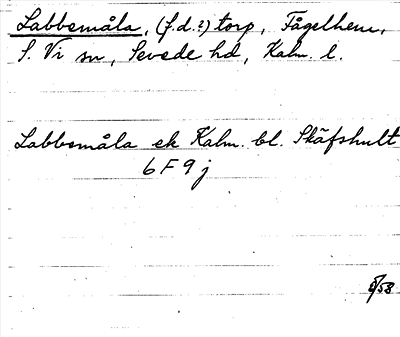 Labbemåla, (f.d.?) torp, Fågelhem,
S. Vi sn, Sevede hd, Kalm. l.
Labbemåla ek Kalm. bl. Skäfshult
6 F 9 j
/58